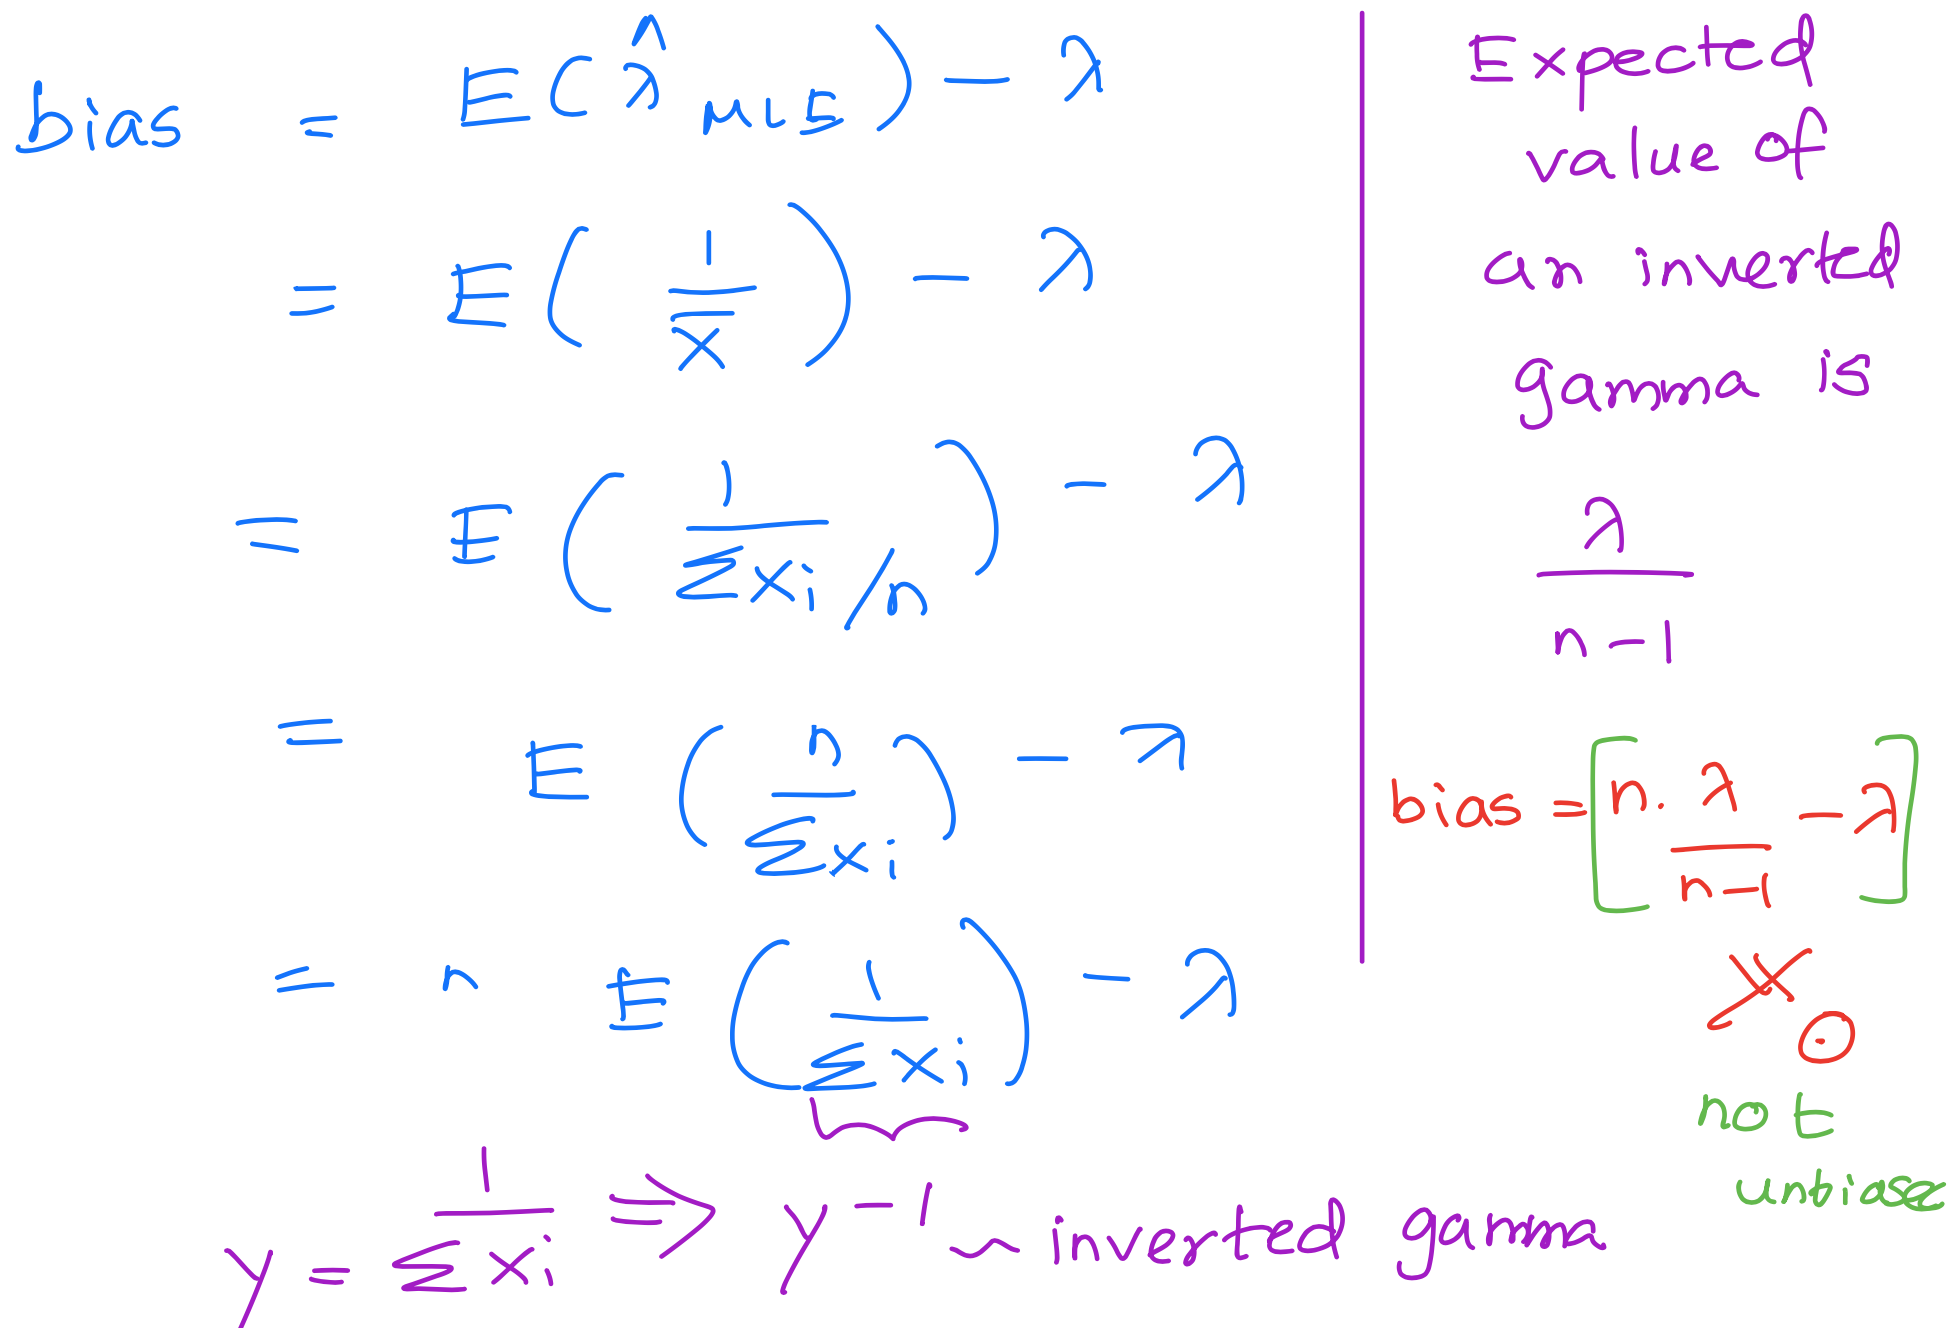 bias = E(λ̂_MLE) − λ
= E(1/x̄) − λ
= E(1/(Σxi/n)) − λ
= E(n/Σxi) − λ
= n E(1/Σxi) − λ
y = 1/Σxi ⇒ y⁻¹ ~ inverted gamma
Expected
value of
an inverted
gamma is
λ/(n−1)
bias = [n · λ/(n−1) − λ]
≠ 0
not
unbiased